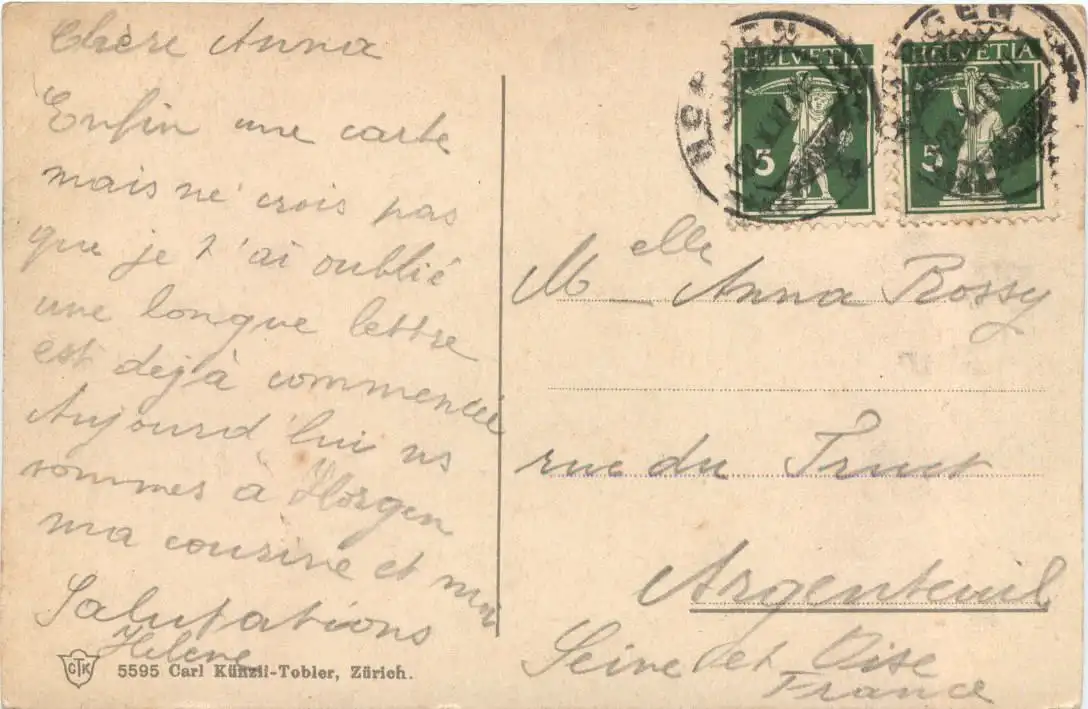 Chère Anna
Enfin une carte
mais ne crois pas
que je t'ai oublié
une longue lettre
est dejà commencée
Aujourd'hui ns
sommes à Horgen
ma cousine et moi
Salutations
Helene
CTK
5595 Carl Künzli-Tobler, Zürich.
HELVETIA
5
HELVETIA
5
HORGEN
Melle Anna Rossy
rue du
Argenteuil
Seine et Oise
France